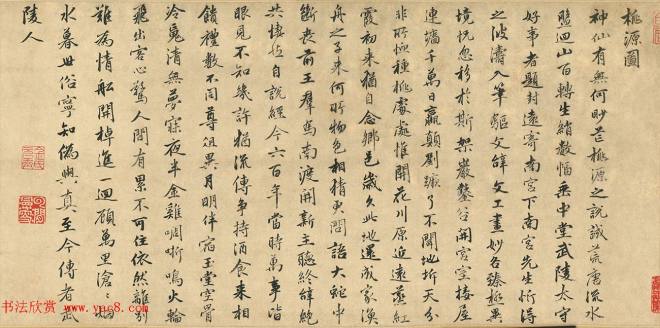 桃源圖
神仙有無何眇芒桃源之說誠荒唐流水
盤迴山百轉生綃數幅垂中堂武陵太守
好事者題封遠寄南宮下南宮先生忻得
之波濤入筆驅文辭文工畫妙各臻極異
境恍忽移於斯架巖鑿谷開宮室接屋
連墻千萬日嬴顛劉蹶了不聞地坼天分
非所恤種桃處處惟開花川原近遠蒸紅
霞初來猶自念鄉邑歲久此地還成家漁
舟之子來何所物色相猜更問語大蛇中
斷喪前王羣馬南渡開新主聽終辭絕
共悽然自說經今六百年當時萬事皆
眼見不知幾許猶流傳爭持酒食來相
饋禮數不同尊俎異月明伴宿玉堂空骨
冷魂清無夢寐夜半金雞啁哳鳴火輪
飛出客心驚人間有累不可住依然離別
難為情船開棹進一迴顧萬里滄滄煙
水暮世俗寧知偽與真至今傳者武
陵人
书法欣赏
www.yac8.com